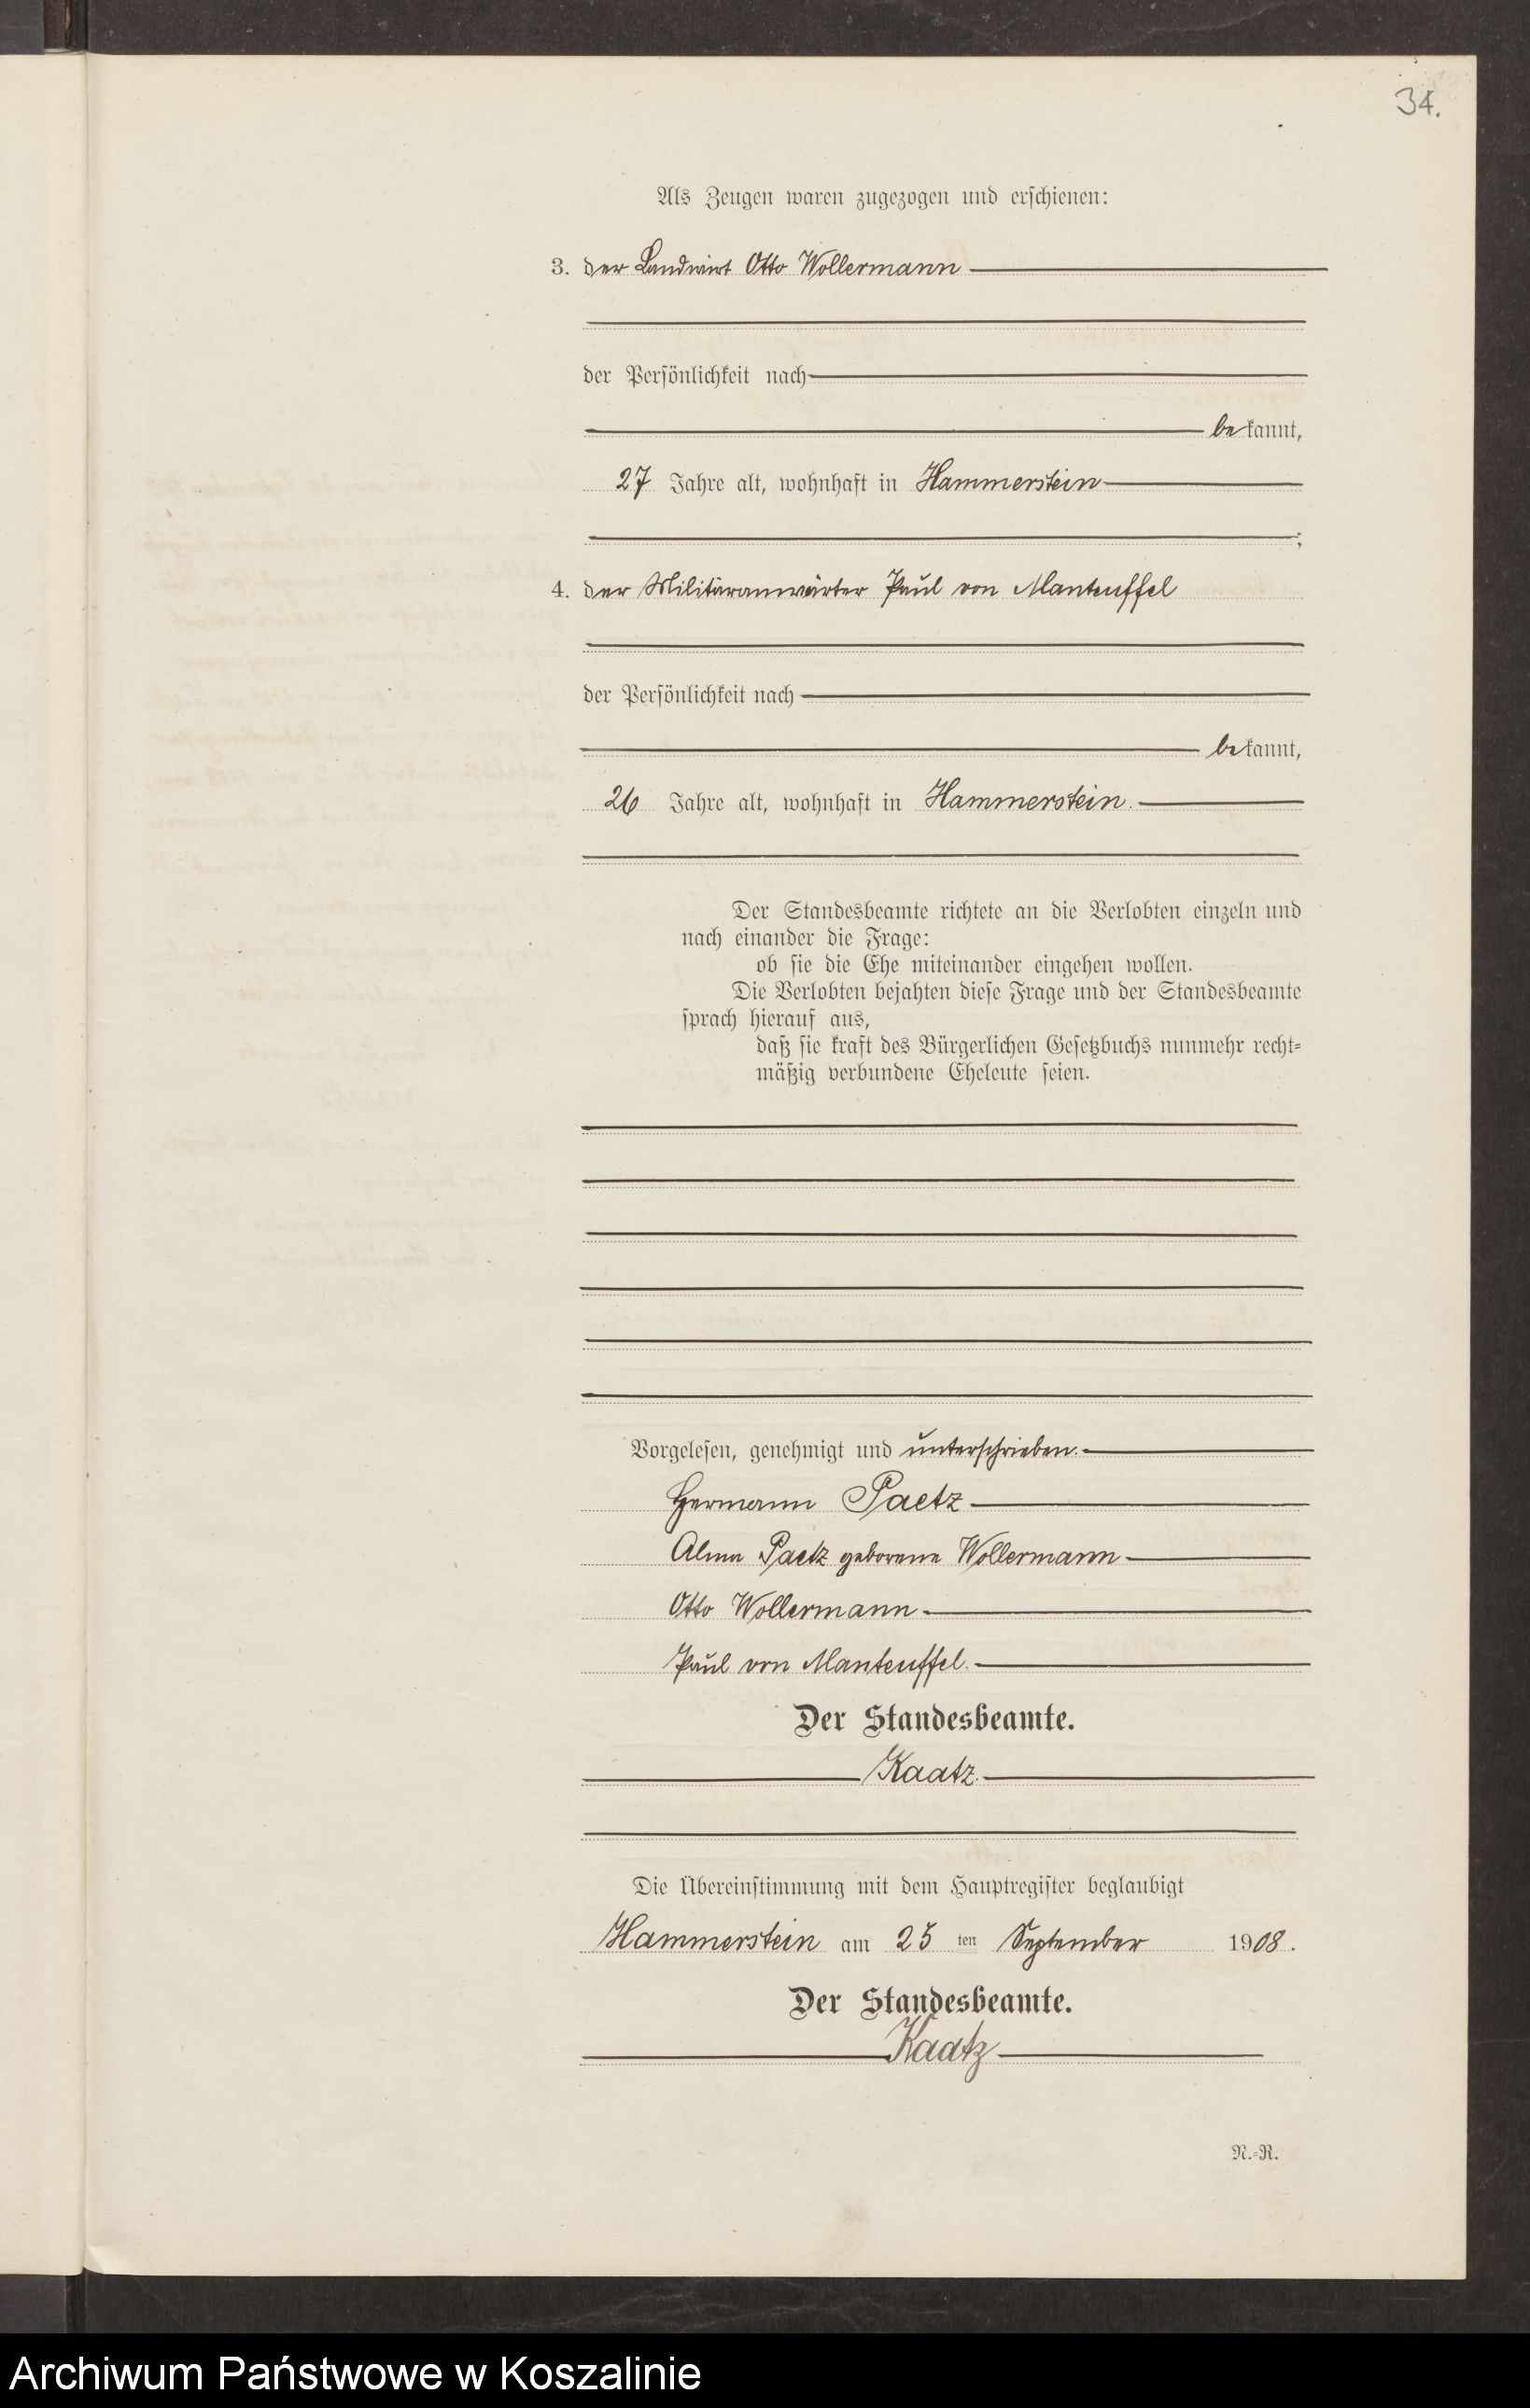 34.
Als Zeugen waren zugezogen und erschienen:
3. der Landwirt Otto Wollermann
der Persönlichkeit nach
bekannt,
27 Jahre alt, wohnhaft in Hammerstein
;
4. der Militäranwärter Paul von Manteuffel
der Persönlichkeit nach
bekannt,
26 Jahre alt, wohnhaft in Hammerstein.
Der Standesbeamte richtete an die Verlobten einzeln und
nach einander die Frage:
ob sie die Ehe miteinander eingehen wollen.
Die Verlobten bejahten diese Frage und der Standesbeamte
sprach hierauf aus,
daß sie kraft des Bürgerlichen Gesetzbuchs nunmehr recht-
mäßig verbundene Eheleute seien.
Vorgelesen, genehmigt und unterschrieben.
Hermann Paetz
Alma Paetz geborene Wollermann
Otto Wollermann
Paul von Manteuffel.
Der Standesbeamte.
Kaatz.
Die Übereinstimmung mit dem Hauptregister beglaubigt
Hammerstein am 25 ten September 1908.
Der Standesbeamte.
Kaatz
N.-R.
Archiwum Państwowe w Koszalinie